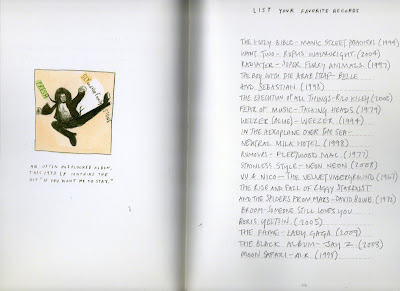 AN OFTEN OVERLOOKED ALBUM,
THIS 1973 LP CONTAINS THE
HIT "IF YOU WANT ME TO STAY."
LIST YOUR FAVORITE RECORDS
THE HOLY BIBLE - MANIC STREET PREACHERS (1994)
WANT TWO - RUFUS WAINWRIGHT. (2004)
RADIATOR - SUPER FURRY ANIMALS. (1997)
THE BOY WITH THE ARAB STRAP - BELLE
AND SEBASTIAN. (1998)
THE EXECUTION OF ALL THINGS - RILO KILEY (2002)
FEAR OF MUSIC - TALKING HEADS (1979)
WEEZER (BLUE) - WEEZER. (1994)
IN THE AEROPLANE OVER THE SEA -
NEUTRAL MILK HOTEL (1998)
RUMOURS - FLEETWOOD MAC. (1977)
STAINLESS STYLE - NEON NEON (2008)
VU & NICO - THE VELVET UNDERGROUND (1967)
THE RISE AND FALL OF ZIGGY STARDUST
AND THE SPIDERS FROM MARS - DAVID BOWIE. (1972)
BROOM - SOMEONE STILL LOVES YOU
BORIS YELTSIN. (2005)
THE FAME - LADY GAGA (2009)
THE BLACK ALBUM - JAY Z. (2003)
MOON SAFARI - AIR (1998)